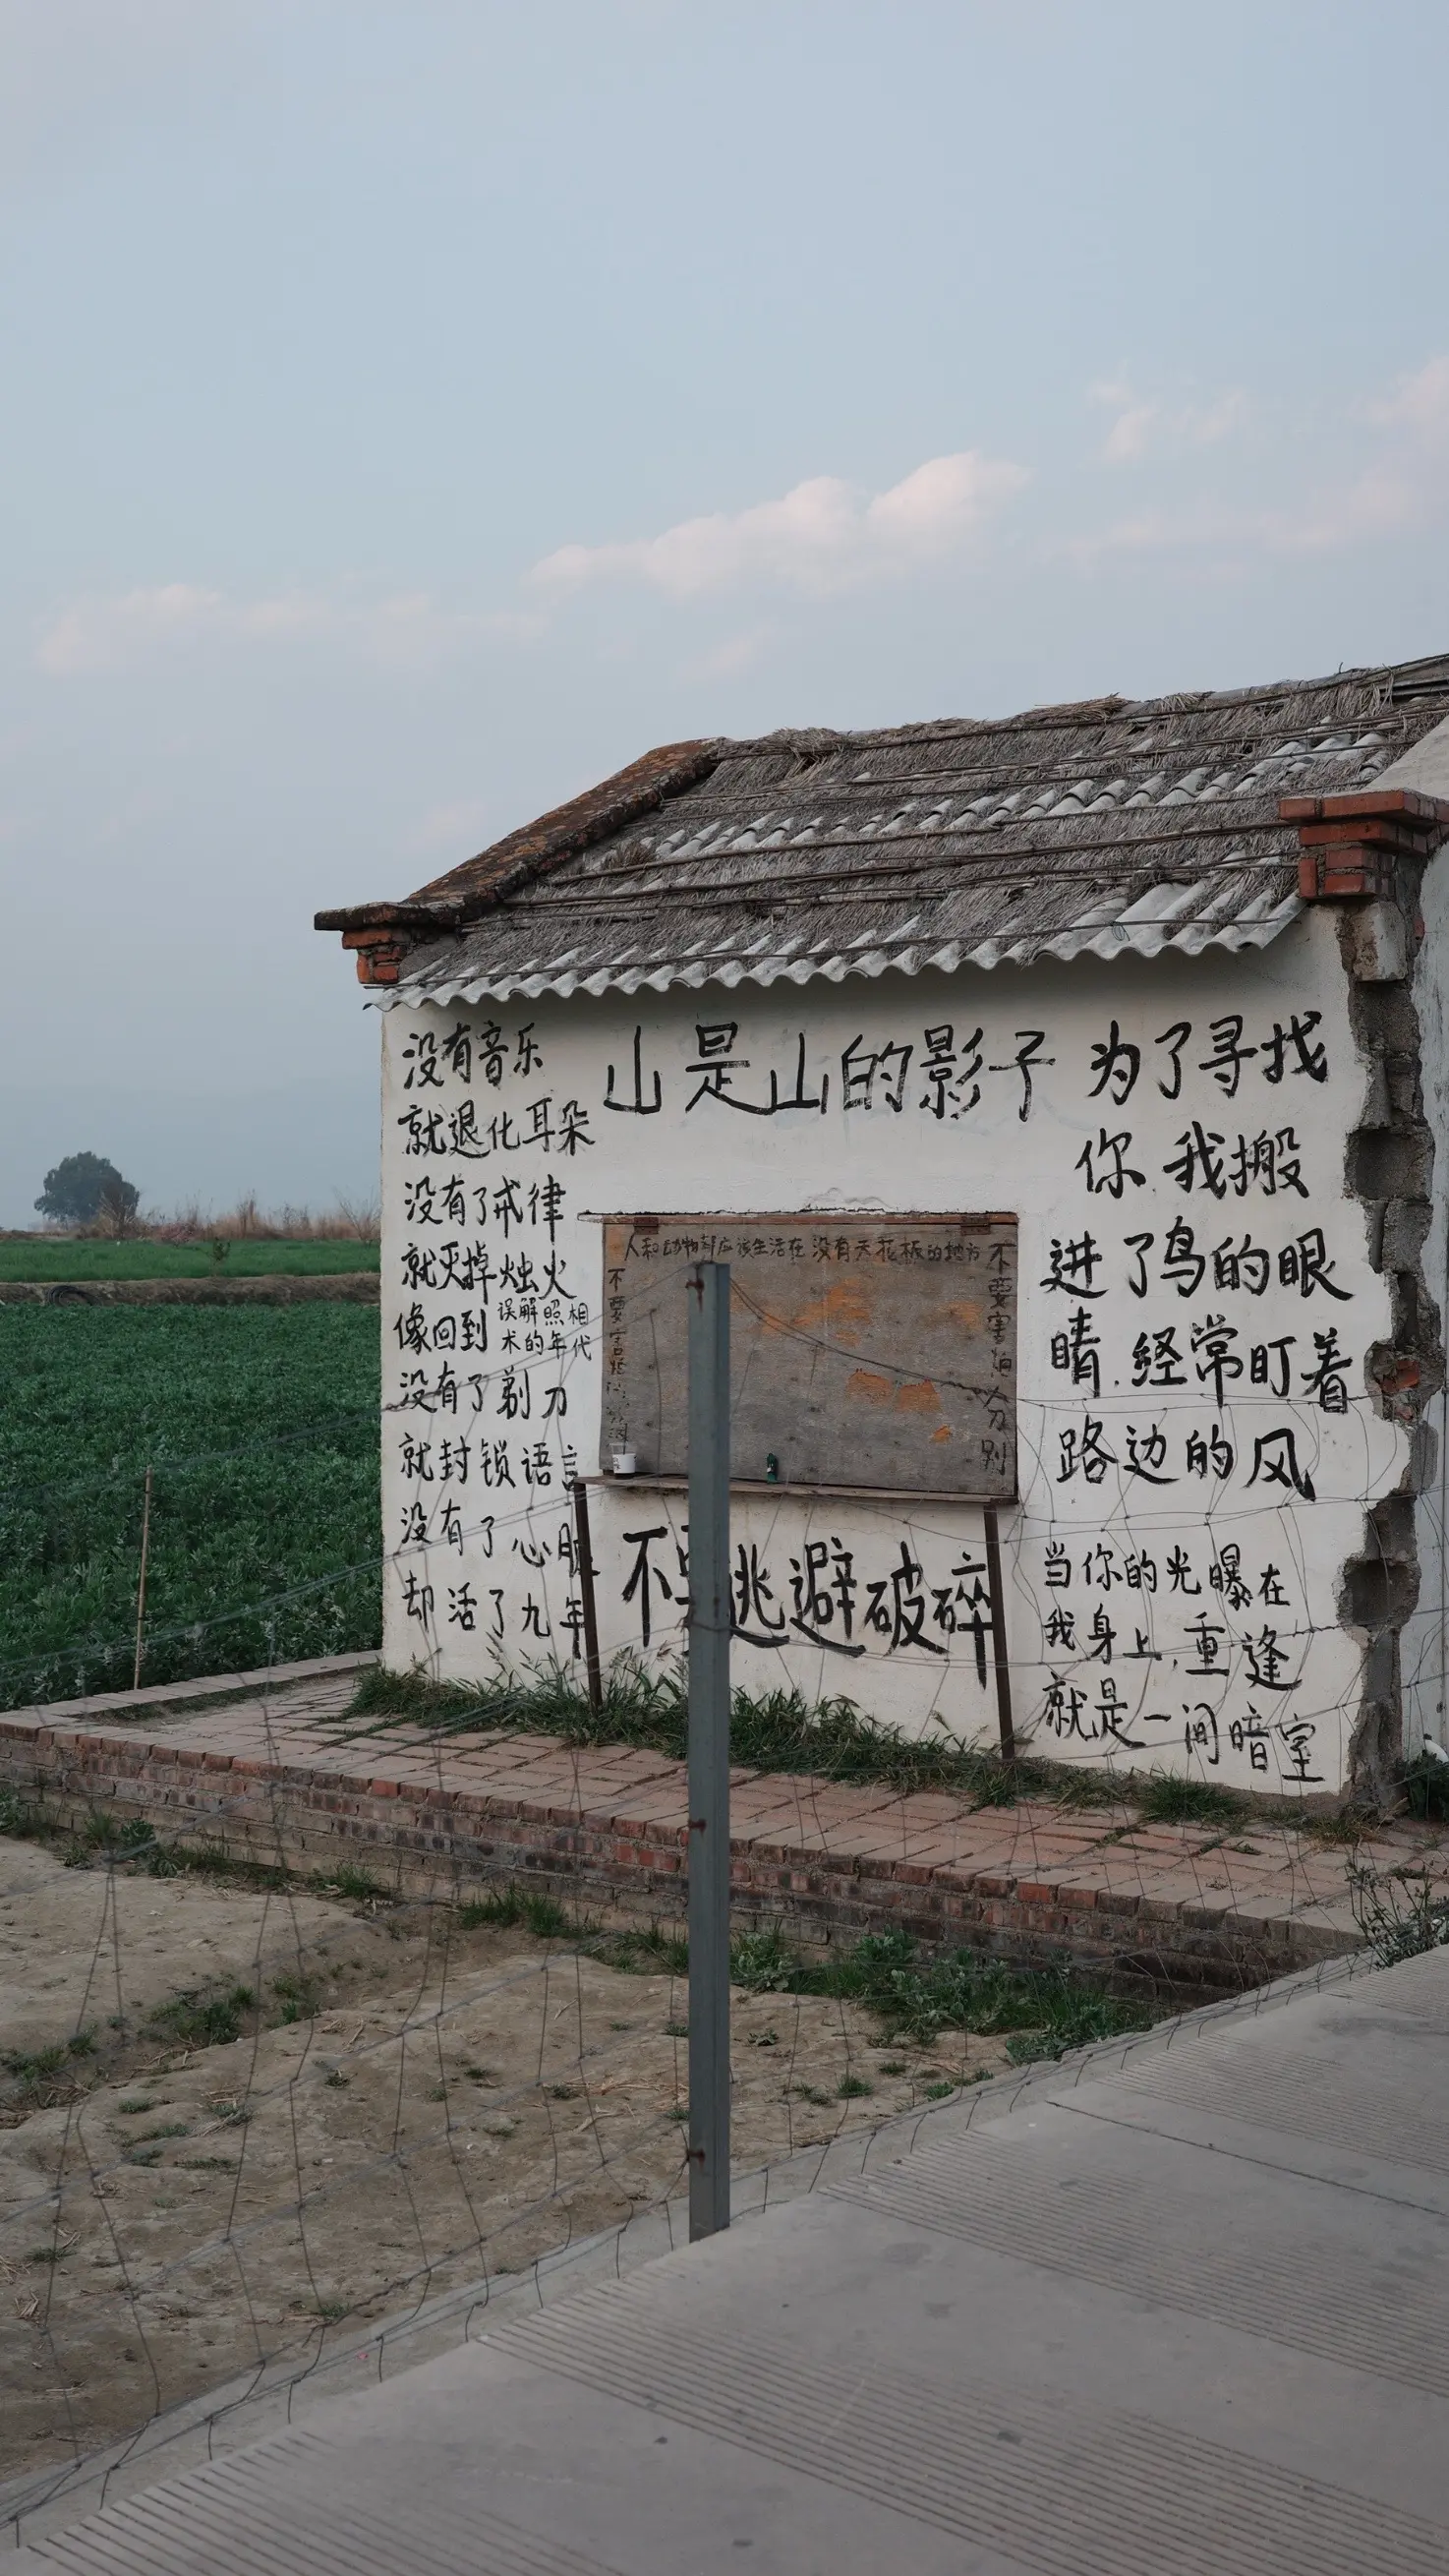 没有音乐
就退化耳朵
没有了戒律
就灭掉烛火
像回到误解照相
术的年代
没有了剃刀
就封锁语言
没有了心脏
却活了九年
山是山的影子
人和动物都应该生活在没有天花板的地方
不要害怕
不要害怕分别
不逃避破碎
为了寻找
你.我搬
进了鸟的眼
睛.经常盯着
路边的风
当你的光曝在
我身上,重逢
就是一间暗室